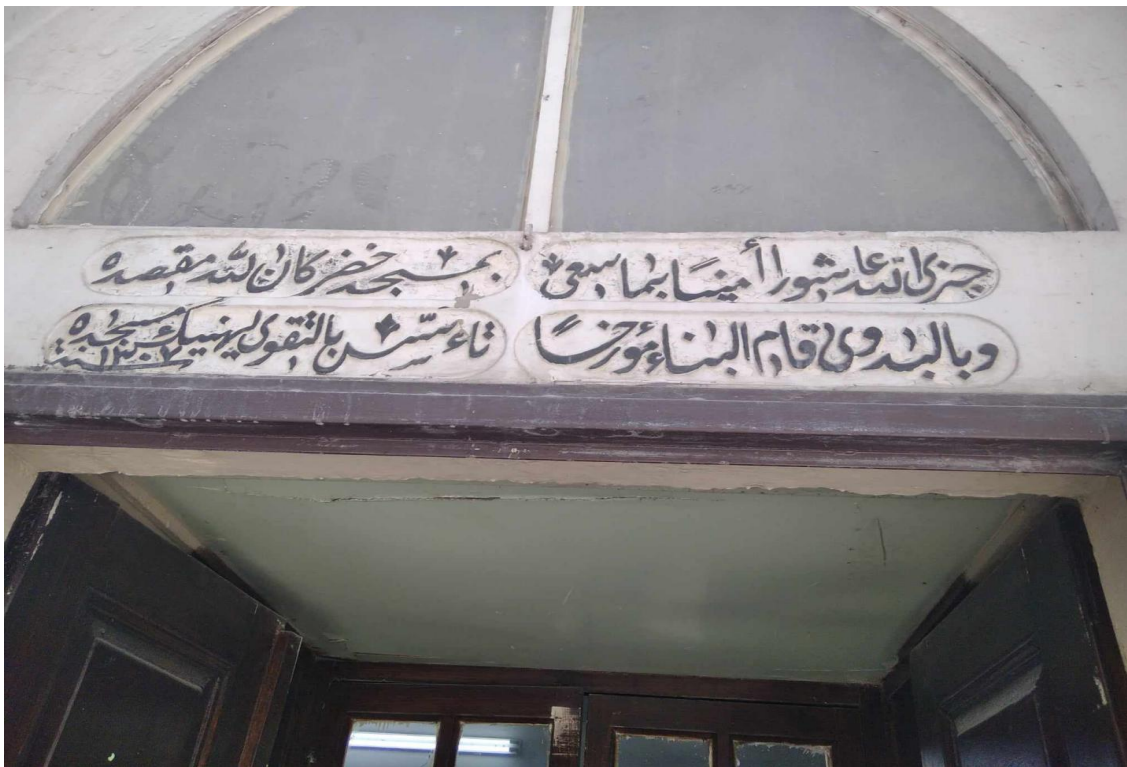 جزى الله عاشورا أمينا بما سعى بمسجد خضر كان لله مقصده
وبالبدوى قام البناء مؤرخا تأسس بالتقوى ليهنيك مسجده
سنة ١٣٠٧